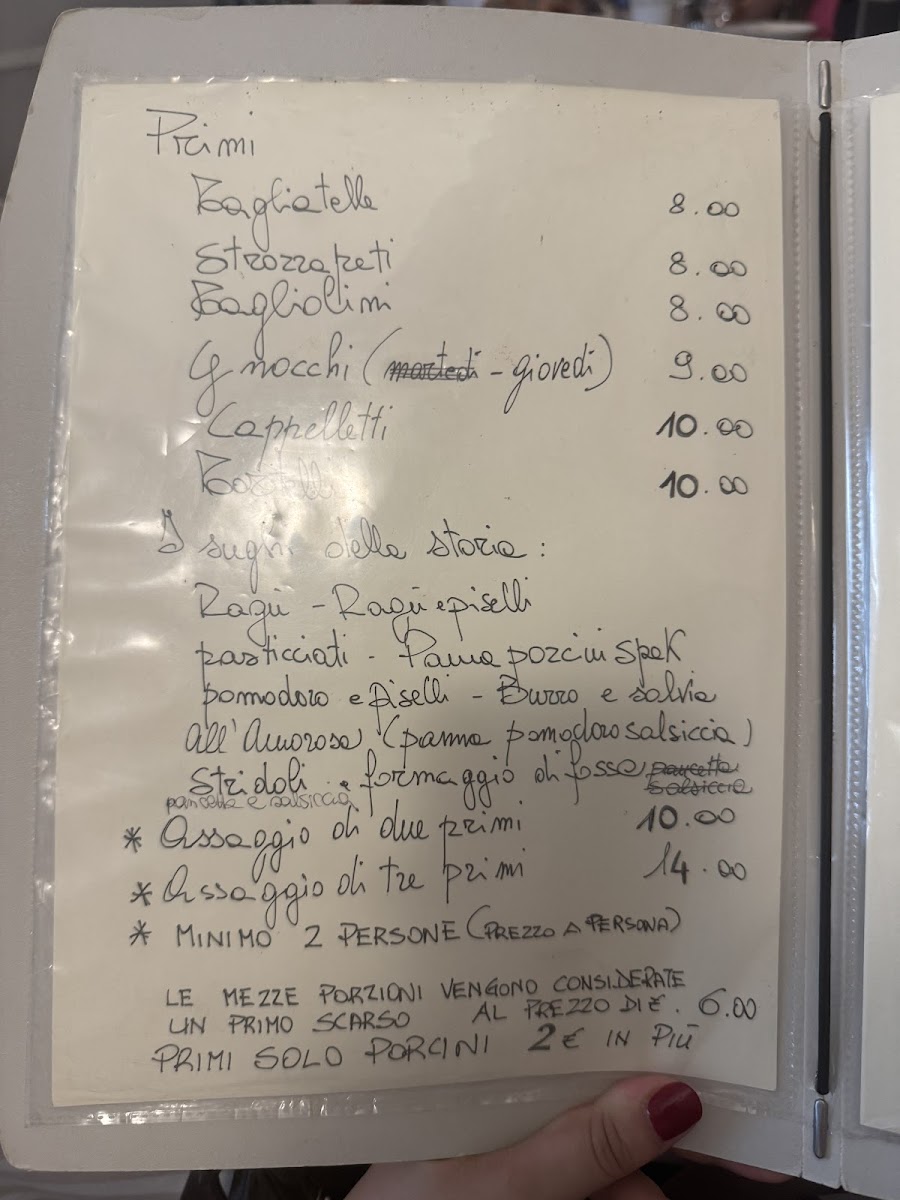 Primi
Tagliatelle 8.00
Strozzapreti 8.00
Tagliolini 8.00
Gnocchi (martedì - giovedì) 9.00
Cappelletti 10.00
Tortelli 10.00
I sughi della storia :
Ragù - Ragù e piselli
pasticciati - Panna porcini spek
pomodoro e piselli - Burro e salvia
all'Amorosa (panna pomodoro salsiccia)
Stridoli - formaggio di fossa pancetta
salsiccia
pancetta e salsiccia
* Assaggio di due primi 10.00
* Assaggio di tre primi 14.00
* MINIMO 2 PERSONE (PREZZO A PERSONA)
LE MEZZE PORZIONI VENGONO CONSIDERATE
UN PRIMO SCARSO AL PREZZO DI €. 6.00
PRIMI SOLO PORCINI 2 € IN PIÙ